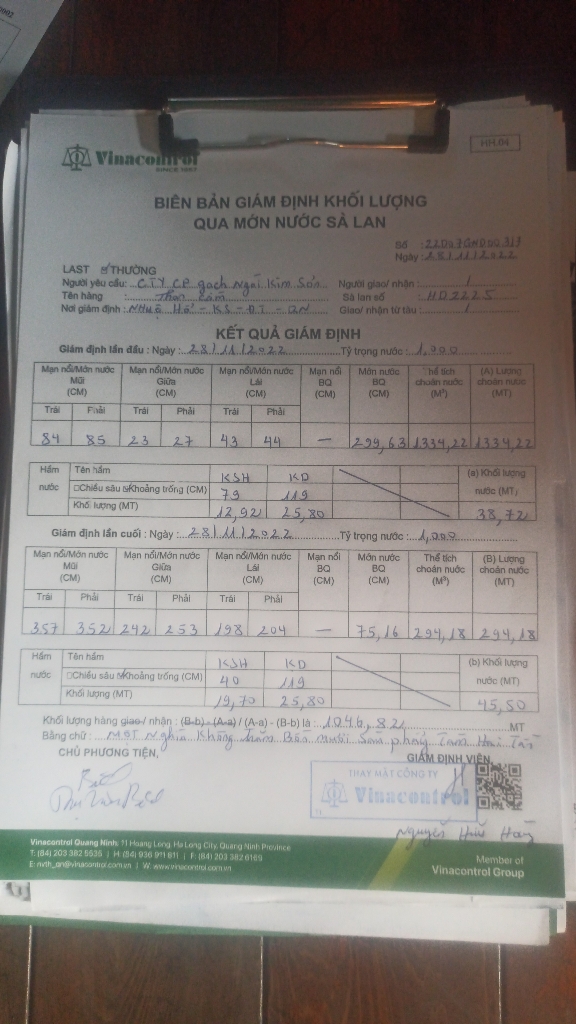 Vinacontrol
SINCE 1957
HH.04
BIÊN BẢN GIÁM ĐỊNH KHỐI LƯỢNG
QUA MỚN NƯỚC SÀ LAN
Số :
Ngày : 28/11/2022
LAST THƯỜNG
Người yêu cầu: CTY CP gạch Ngói Kim Sơn Người giao/ nhận : /
Tên hàng : Than cám Sà lan số : HD2225
Nơi giám định : Nhuệ Hổ - KS - ĐT - QN Giao/ nhận từ tàu : /
KẾT QUẢ GIÁM ĐỊNH
Giám định lần đầu : Ngày : 28/11/2022 Tỷ trọng nước : 1,000
Mạn nổi/Mớn nước Mũi (CM) Mạn nổi/Mớn nước Giữa (CM) Mạn nổi/Mớn nước Lái (CM) Mạn nổi BQ (CM) Mớn nước BQ (CM) Thể tích choán nước (M³) (A) Lượng choán nước (MT)
Trái Phải Trái Phải Trái Phải
84 85 23 27 43 44 — 299,63 1334,22 1334,22
Hầm nước Tên hầm KSH KD (a) Khối lượng nước (MT)
□Chiều sâu ☑Khoảng trống (CM) 79 119
Khối lượng (MT) 12,92 25,80 38,72
Giám định lần cuối : Ngày : 28/11/2022 Tỷ trọng nước : 1,000
Mạn nổi/Mớn nước Mũi (CM) Mạn nổi/Mớn nước Giữa (CM) Mạn nổi/Mớn nước Lái (CM) Mạn nổi BQ (CM) Mớn nước BQ (CM) Thể tích choán nước (M³) (B) Lượng choán nước (MT)
Trái Phải Trái Phải Trái Phải
357 352 242 253 198 204 — 75,16 294,18 294,18
Hầm nước Tên hầm KSH KD (b) Khối lượng nước (MT)
□Chiều sâu ☑Khoảng trống (CM) 40 119
Khối lượng (MT) 19,70 25,80 45,50
Khối lượng hàng giao/ nhận : (B-b) - (A-a) / (A-a) - (B-b) là : 1046,82 MT
Bằng chữ : Một Nghìn Không Trăm Bốn mươi Sáu phẩy Tám Hai Tấn
CHỦ PHƯƠNG TIỆN, GIÁM ĐỊNH VIÊN,
THAY MẶT CÔNG TY
Vinacontrol
Nguyễn
Vinacontrol Quang Ninh: 11 Hoang Long, Ha Long City, Quang Ninh Province
T: (84) 203 382 5535 | H: (84) 936 911 811 | F: (84) 203 382 6169
W: www.vinacontrol.com.vn
Member of
Vinacontrol Group